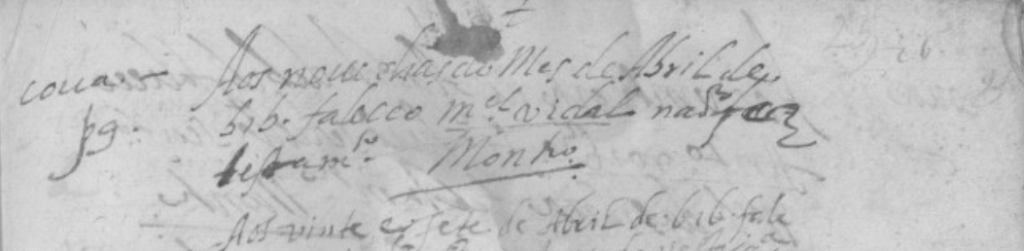 coua
pg.
Aos noue dias do Mes de Abril de
bib. faleceo m.el vidal naõ fez
testam.to Montr.o
Aos vinte e sete de Abril de bib. fale